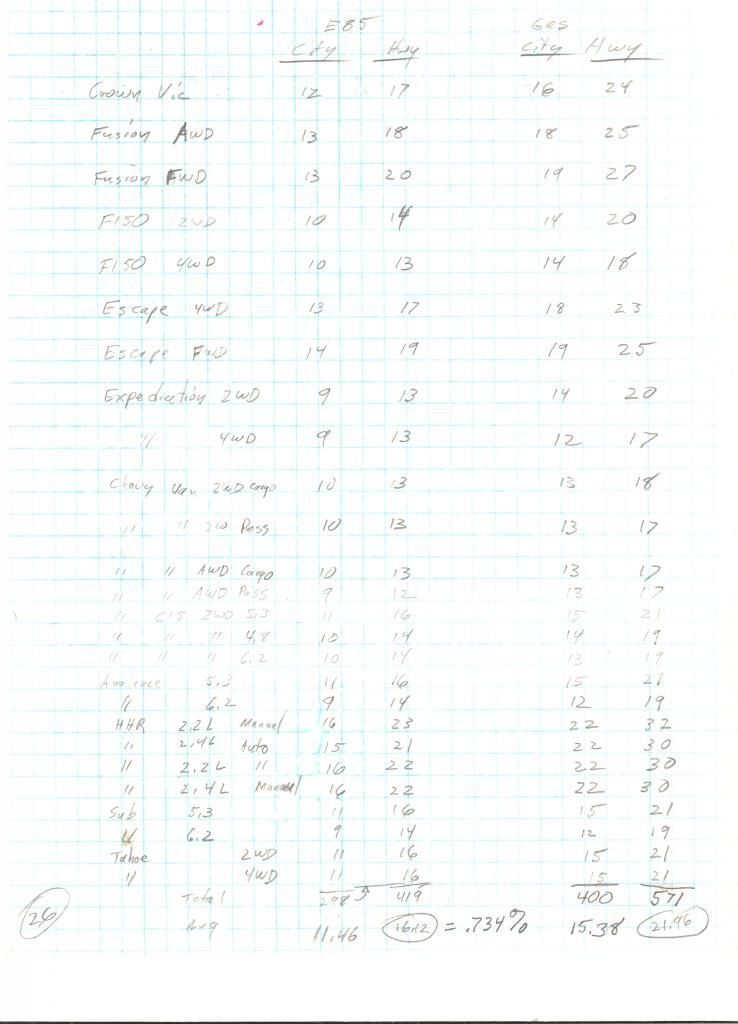 E85 Gas
City Hwy City Hwy
Crown Vic 12 17 16 24
Fusion AWD 13 18 18 25
Fusion FWD 13 20 19 27
F150 2WD 10 14 14 20
F150 4WD 10 13 14 18
Escape 4WD 13 17 18 23
Escape FWD 14 19 19 25
Expediction 2WD 9 13 14 20
" 4WD 9 13 12 17
Chevy Van 2WD Cargo 10 13 13 18
" " 2W Pass 10 13 13 17
" " AWD Cargo 10 13 13 17
" " AWD Pass 9 12 13 17
" C15 2WD 5.3 11 16 15 21
" " " 4.8 10 14 14 19
" " " 6.2 10 14 13 19
5.3 11 16 15 21
" 6.2 9 14 12 19
HHR 2.2L Manual 16 23 22 32
" 2.4L Auto 15 21 22 30
" 2.2L " 16 22 22 30
" 2.4L Manual 16 22 22 30
Sub 5.3 11 16 15 21
" 6.2 9 14 12 19
Tahoe 2WD 11 16 15 21
" 4WD 11 16 15 21
Total 298 419 400 571
26 Avg 11.46 16.12 = .734% 15.38 21.96